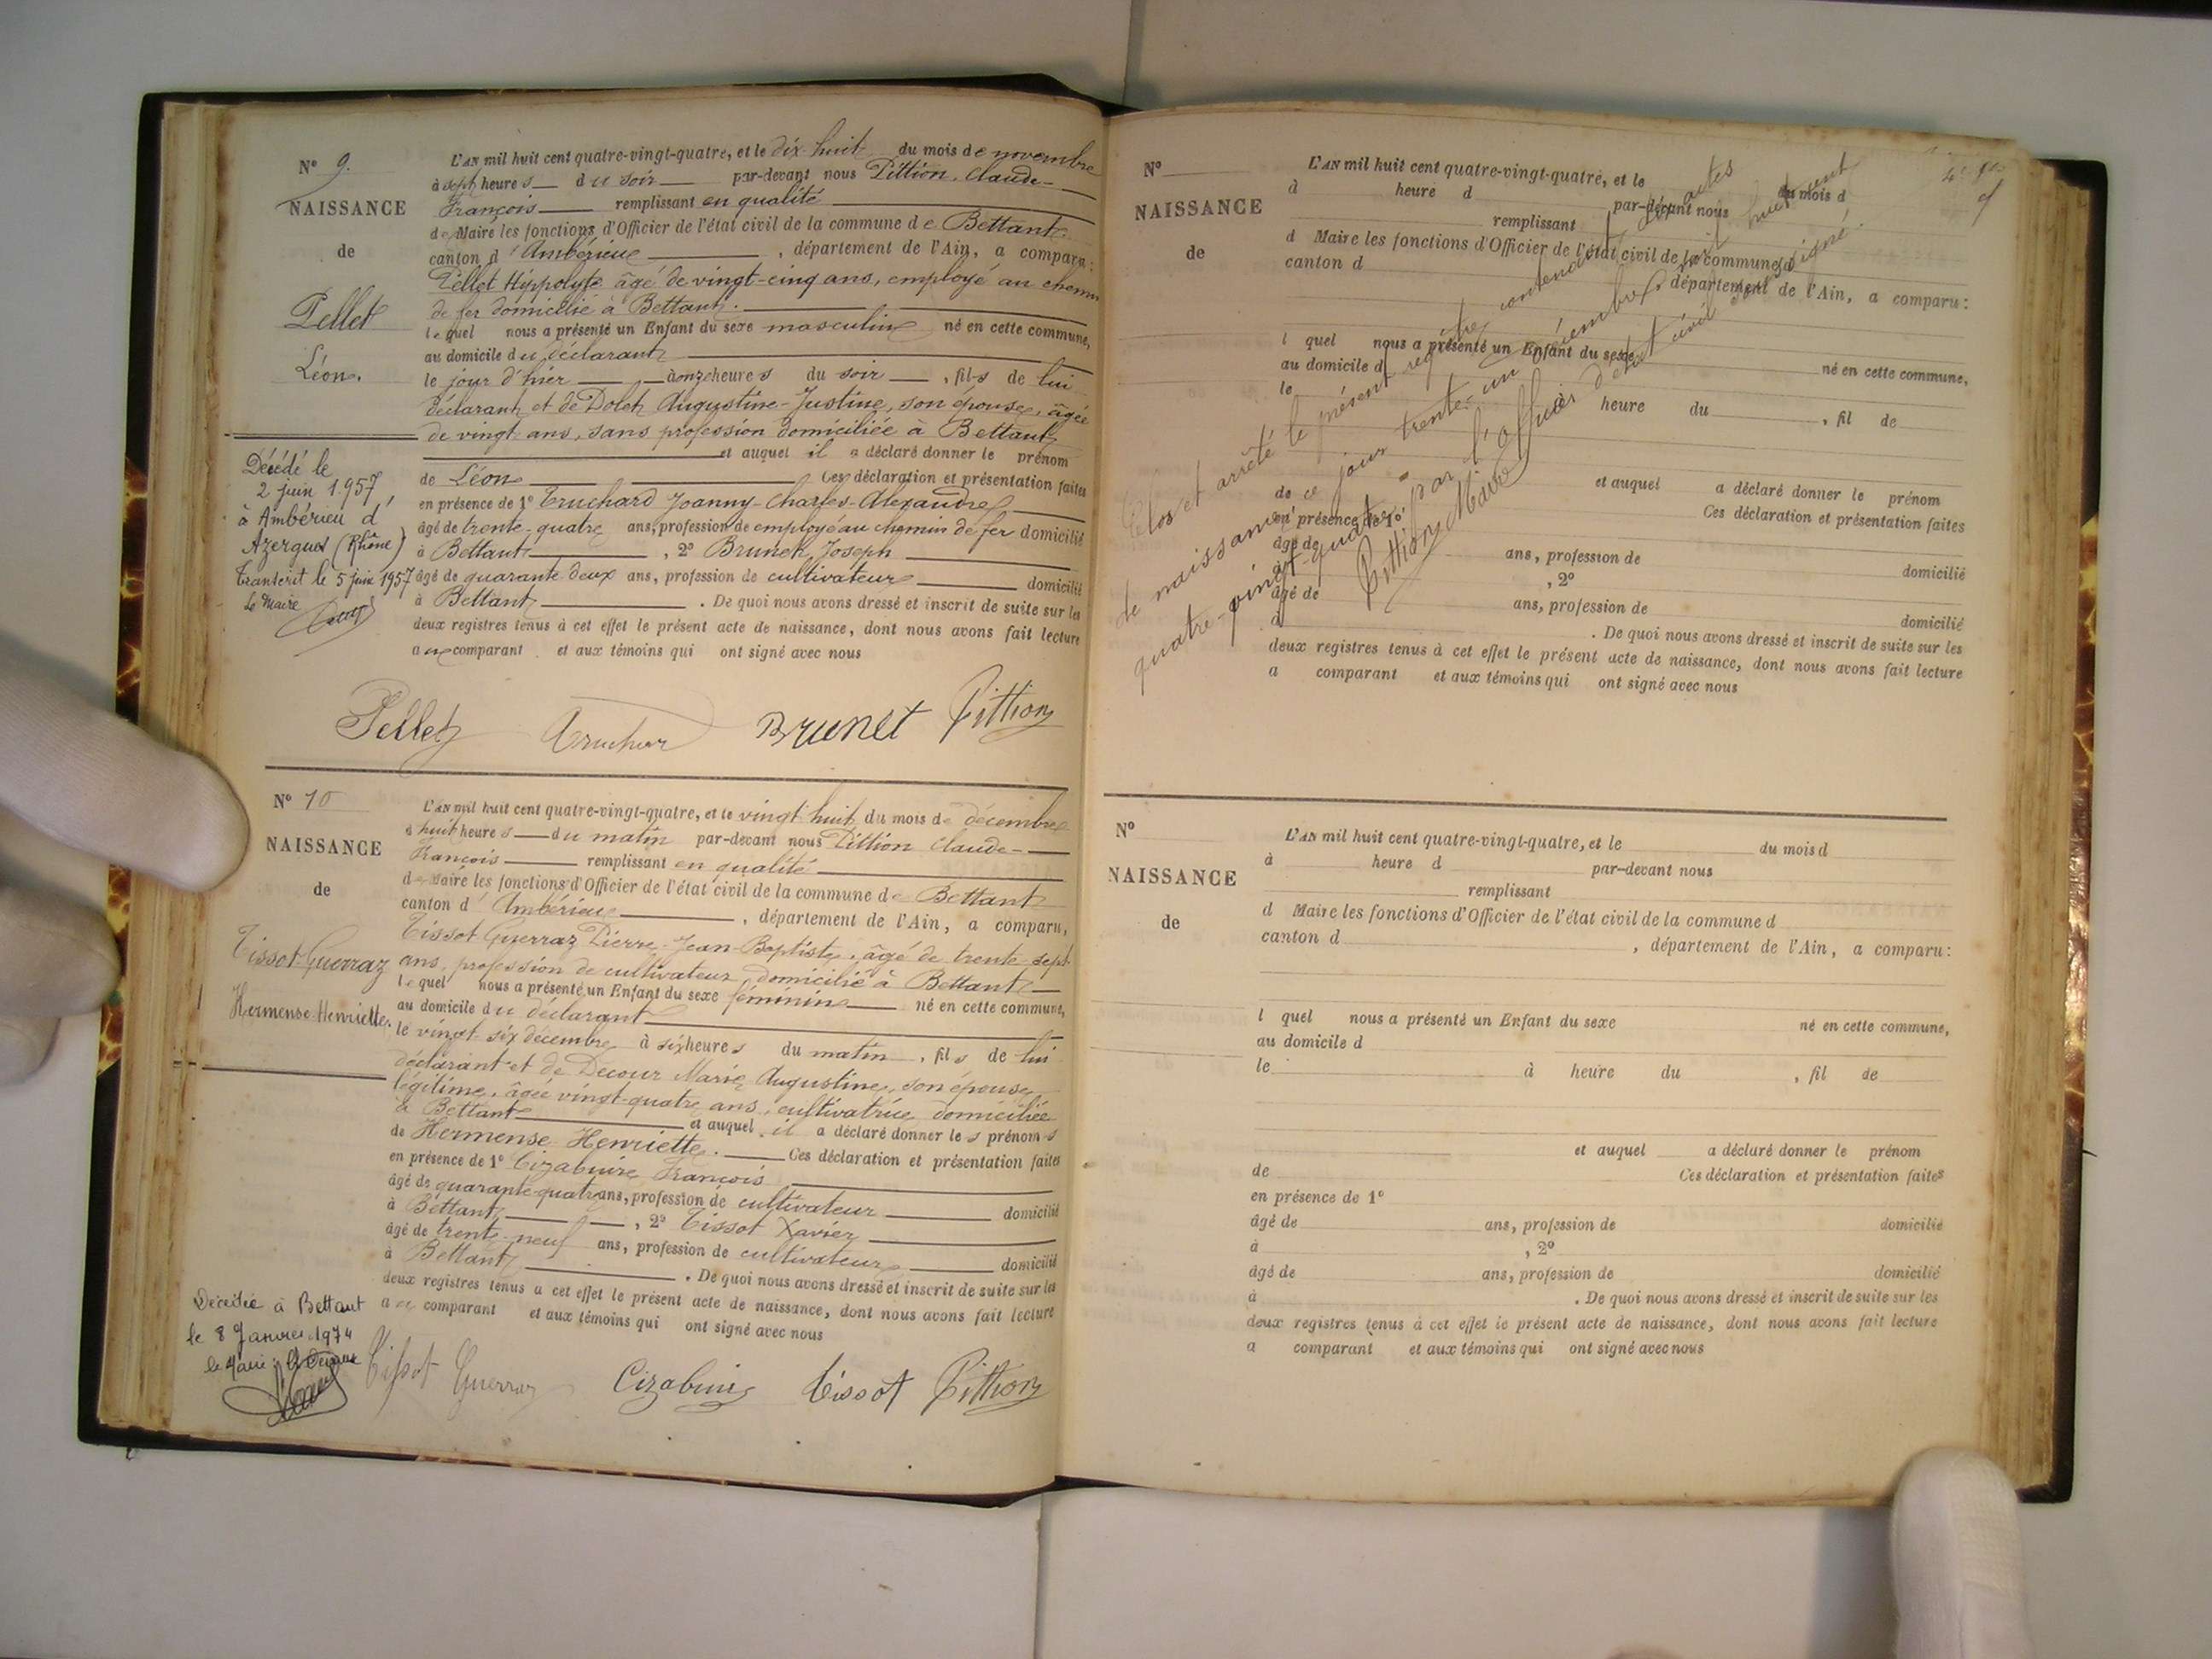 N° 9.
NAISSANCE
de
Pellet
Léon.
L'AN mil huit cent quatre-vingt-quatre, et le dix huit du mois de novembre
à sept heures du soir par-devant nous Pittion, Claude-
François remplissant en qualité
de Maire les fonctions d'Officier de l'état civil de la commune de Bettant
canton d'Ambérieu, département de l'Ain, a comparu:
Pellet Hippolyte âgé de vingt-cinq ans, employé au chemin
de fer domicilié à Bettant.
lequel nous a présenté un Enfant du sexe masculin né en cette commune,
au domicile du déclarant
le jour d'hier à onze heures du soir, fils de lui
déclarant et de Dolet Augustine-Justine, son épouse, âgée
de vingt ans, sans profession domiciliée à Bettant
et auquel il a déclaré donner le prénom
de Léon Ces déclaration et présentation faites
en présence de 1° Truchard Joanny-Charles-Alexandre
âgé de trente-quatre ans, profession de employé au chemin de fer domicilié
à Bettant, 2° Brunet Joseph
âgé de quarante deux ans, profession de cultivateur domicilié
à Bettant. De quoi nous avons dressé et inscrit de suite sur les
deux registres tenus à cet effet le présent acte de naissance, dont nous avons fait lecture
au comparant et aux témoins qui ont signé avec nous
Décédé le
2 juin 1957,
à Ambérieu d'
Azergues (Rhône)
Transcrit le 5 juin 1957
Le Maire
Pellet Truchar Brunet Pittion
N° 10
NAISSANCE
de
Tissot-Guerraz
Hermense-Henriette.
L'AN mil huit cent quatre-vingt-quatre, et le vingt huit du mois de décembre
à huit heures du matin par-devant nous Pittion Claude-
François remplissant en qualité
de Maire les fonctions d'Officier de l'état civil de la commune de Bettant
canton d'Ambérieu, département de l'Ain, a comparu,
Tissot-Guerraz Pierre-Jean-Baptiste, âgé de trente-sept
ans, profession de cultivateur, domicilié à Bettant
lequel nous a présenté un Enfant du sexe féminin né en cette commune,
au domicile du déclarant
le vingt-six décembre à six heures du matin, fils de lui
déclarant et de Decour Marie Augustine, son épouse
légitime, âgée vingt-quatre ans, cultivatrice domiciliée
à Bettant et auquel il a déclaré donner les prénoms
de Hermense Henriette. Ces déclaration et présentation faites
en présence de 1° Cizabuire François
âgé de quarante-quatre ans, profession de cultivateur domicilié
à Bettant, 2° Tissot Xavier
âgé de trente-neuf ans, profession de cultivateur domicilié
à Bettant. De quoi nous avons dressé et inscrit de suite sur les
deux registres tenus à cet effet le présent acte de naissance, dont nous avons fait lecture
au comparant et aux témoins qui ont signé avec nous
Décédée à Bettant
le 8 Janvier 1974
le Maire
Tissot Guerraz Cizabuire Tissot Pittion
N°
NAISSANCE
de
L'AN mil huit cent quatre-vingt-quatre, et le du mois d
à heure d par-devant nous
remplissant
d Maire les fonctions d'Officier de l'état civil de la commune d
canton d, département de l'Ain, a comparu:
l quel nous a présenté un Enfant du sexe né en cette commune,
au domicile d
le à heure du, fil de
et auquel a déclaré donner le prénom
de Ces déclaration et présentation faites
en présence de 1°
âgé de ans, profession de domicilié
à, 2°
âgé de ans, profession de domicilié
à. De quoi nous avons dressé et inscrit de suite sur les
deux registres tenus à cet effet le présent acte de naissance, dont nous avons fait lecture
a comparant et aux témoins qui ont signé avec nous
Clos et arrêté le présent registre contenant dix actes
de naissance, de ce jour trente-un décembre mil huit cent
quatre-vingt-quatre, par l'officier d'état civil soussigné.
Pittion Maire
N°
NAISSANCE
de
L'AN mil huit cent quatre-vingt-quatre, et le du mois d
à heure d par-devant nous
remplissant
d Maire les fonctions d'Officier de l'état civil de la commune d
canton d, département de l'Ain, a comparu:
l quel nous a présenté un Enfant du sexe né en cette commune,
au domicile d
le à heure du, fil de
et auquel a déclaré donner le prénom
de Ces déclaration et présentation faites
en présence de 1°
âgé de ans, profession de domicilié
à, 2°
âgé de ans, profession de domicilié
à. De quoi nous avons dressé et inscrit de suite sur les
deux registres tenus à cet effet le présent acte de naissance, dont nous avons fait lecture
a comparant et aux témoins qui ont signé avec nous